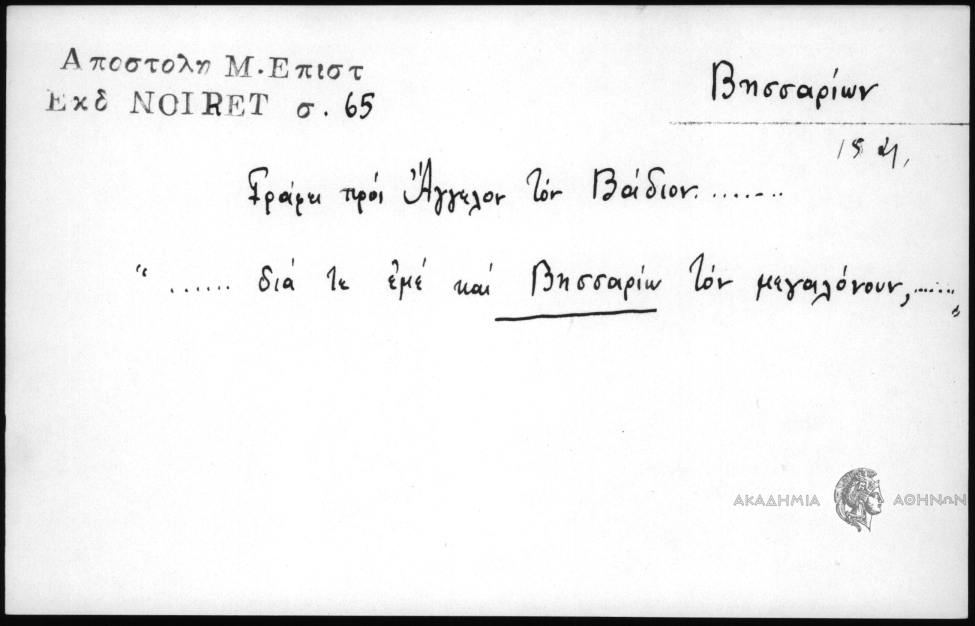 Αποστολη Μ. Επιστ
Εκδ NOIRET σ. 65
Βησσαρίων
Γράφει πρός Ἄγγελον τόν Βάδιον.......
“ ...... διά τε ἐμέ καί Βησσαρίω τόν μεγαλόνουν,...... ”
ΑΚΑΔΗΜΙΑ ΑΘΗΝΩΝ